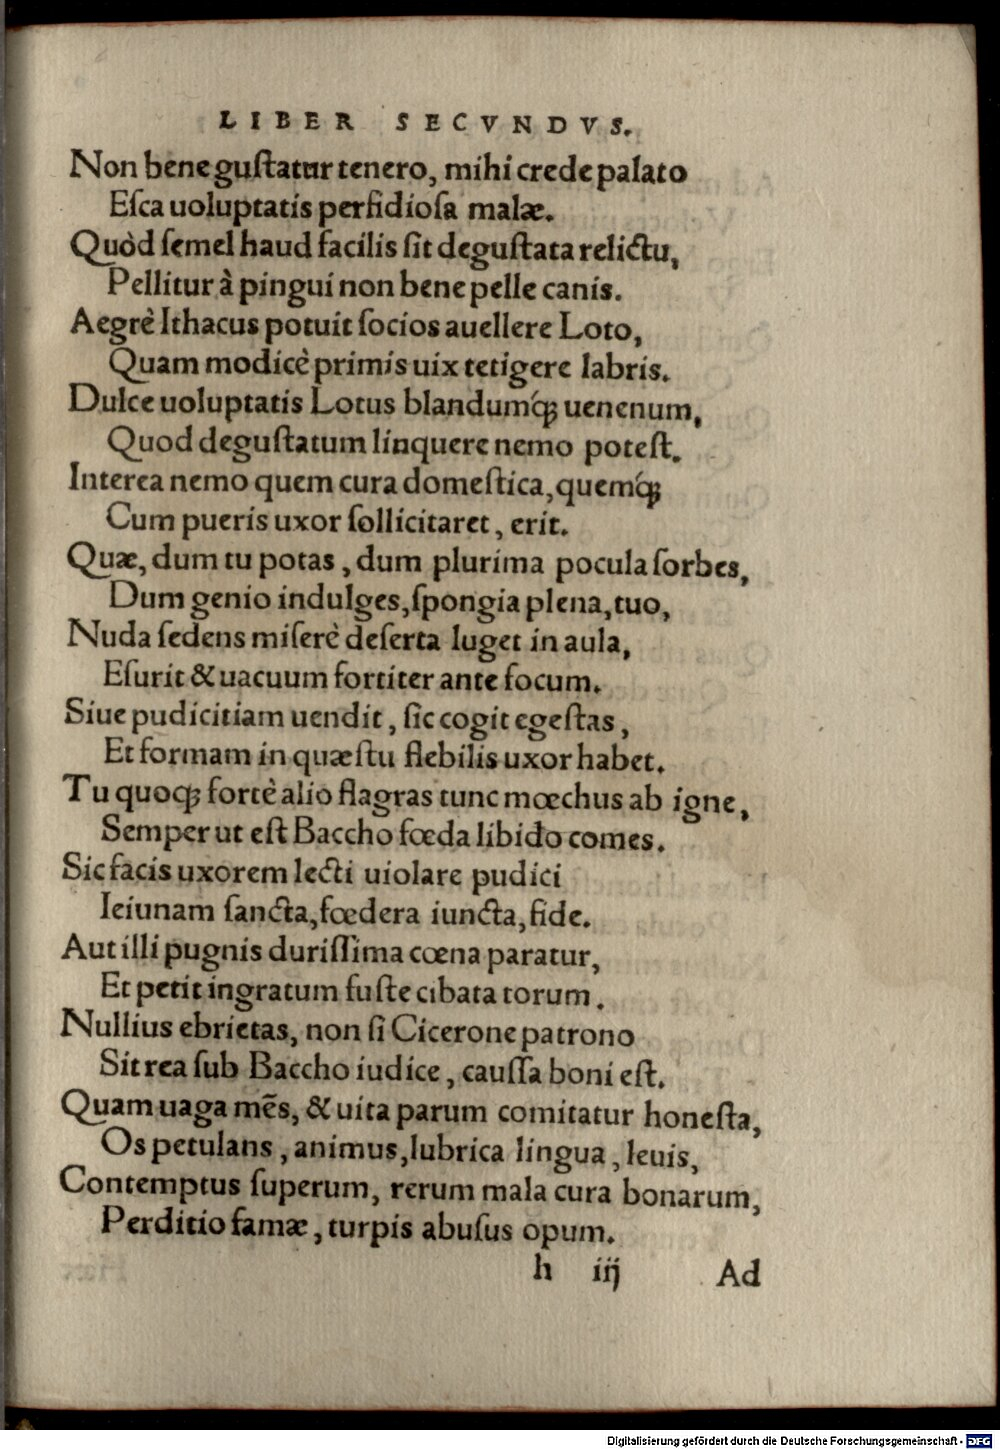 LIBER SECVNDVS.
Non bene guſtatur tenero, mihi crede palato
Eſca uoluptatis perfidioſa malæ.
Quòd ſemel haud facilis ſit deguſtata relictu,
Pellitur à pingui non bene pelle canis.
Aegrè Ithacus potuit ſocios auellere Loto,
Quam modicè primis uix tetigere labris.
Dulce uoluptatis Lotus blandumq́ꝫ uenenum,
Quod deguſtatum linquere nemo poteſt.
Interea nemo quem cura domeſtica, quemq́ꝫ
Cum pueris uxor ſollicitaret, erit.
Quæ, dum tu potas, dum plurima pocula ſorbes,
Dum genio indulges, ſpongia plena, tuo,
Nuda ſedens miſerè deſerta luget in aula,
Eſurit & uacuum fortiter ante focum.
Siue pudicitiam uendit, ſic cogit egeſtas,
Et formam in quæſtu flebilis uxor habet.
Tu quoqꝫ fortè alio flagras tunc mœchus ab igne,
Semper ut eſt Baccho fœda libido comes.
Sic facis uxorem lecti uiolare pudici
Ieiunam ſancta, fœdera iuncta, fide.
Aut illi pugnis duriſſima cœna paratur,
Et petit ingratum fuſte cibata torum.
Nullius ebrietas, non ſi Cicerone patrono
Sit rea ſub Baccho iudice, cauſſa boni eſt.
Quam uaga mēs, & uita parum comitatur honeſta,
Os petulans, animus, lubrica lingua, leuis,
Contemptus ſuperum, rerum mala cura bonarum,
Perditio famæ, turpis abuſus opum.
h iij Ad
Digitalisierung gefördert durch die Deutsche Forschungsgemeinschaft - DFG